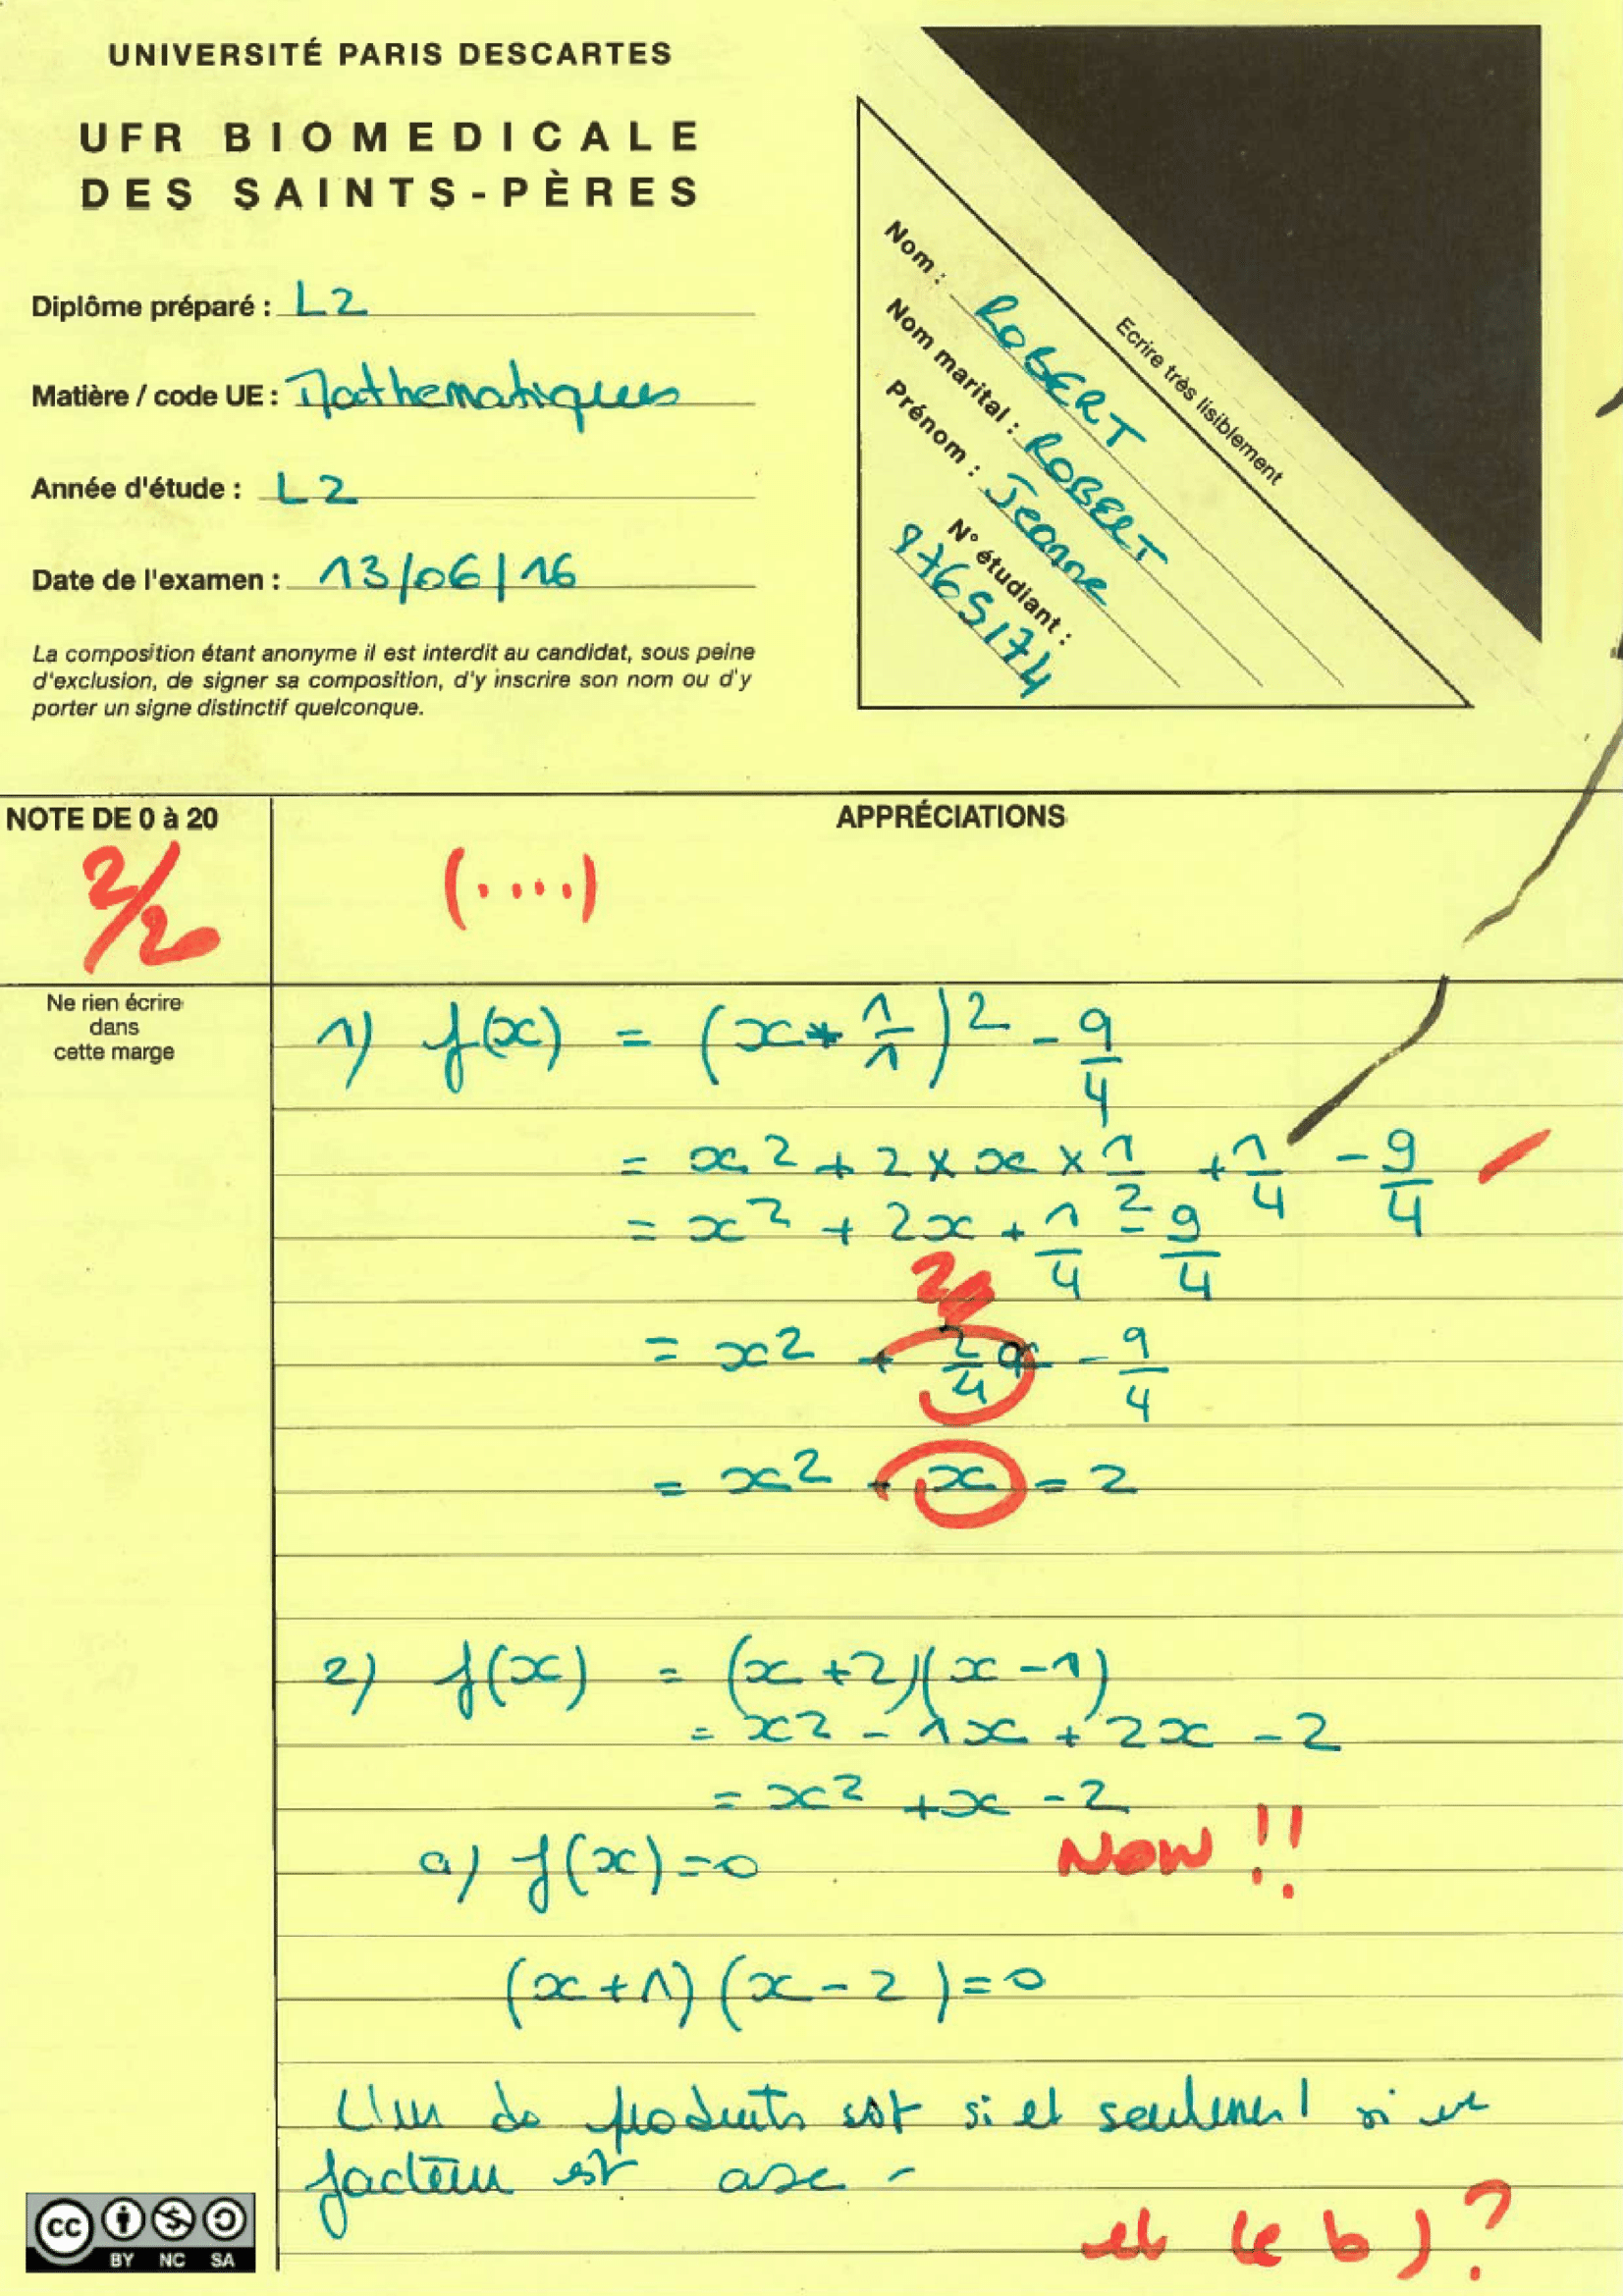 UNIVERSITÉ PARIS DESCARTES
UFR BIOMEDICALE
DES SAINTS-PÈRES
Diplôme préparé : L2
Matière / code UE : Mathematiques
Année d'étude : L2
Date de l'examen : 13/06/16
La composition étant anonyme il est interdit au candidat, sous peine
d'exclusion, de signer sa composition, d'y inscrire son nom ou d'y
porter un signe distinctif quelconque.
Ecrire très lisiblement
Nom : ROBERT
Nom marital : ROBERT
Prénom : Jeanne
N° étudiant :
9765174
NOTE DE 0 à 20
2/20
APPRÉCIATIONS
(....)
Ne rien écrire
dans
cette marge
1) f(x) = (x + 1/1)² - 9/4
= x² + 2 × x × 1/2 + 1/4 - 9/4
= x² + 2x + 1/4 - 9/4
= x² + 2/4 - 9/4
= x² + x = 2
2) f(x) = (x +2)(x -1)
= x2 - 1x + 2x - 2
= x² +x -2
a) f(x)=0
NON !!
(x+1)(x-2)=0
L'un de produits est si et seulement si un
facteur est
et le b) ?
CC BY NC SA